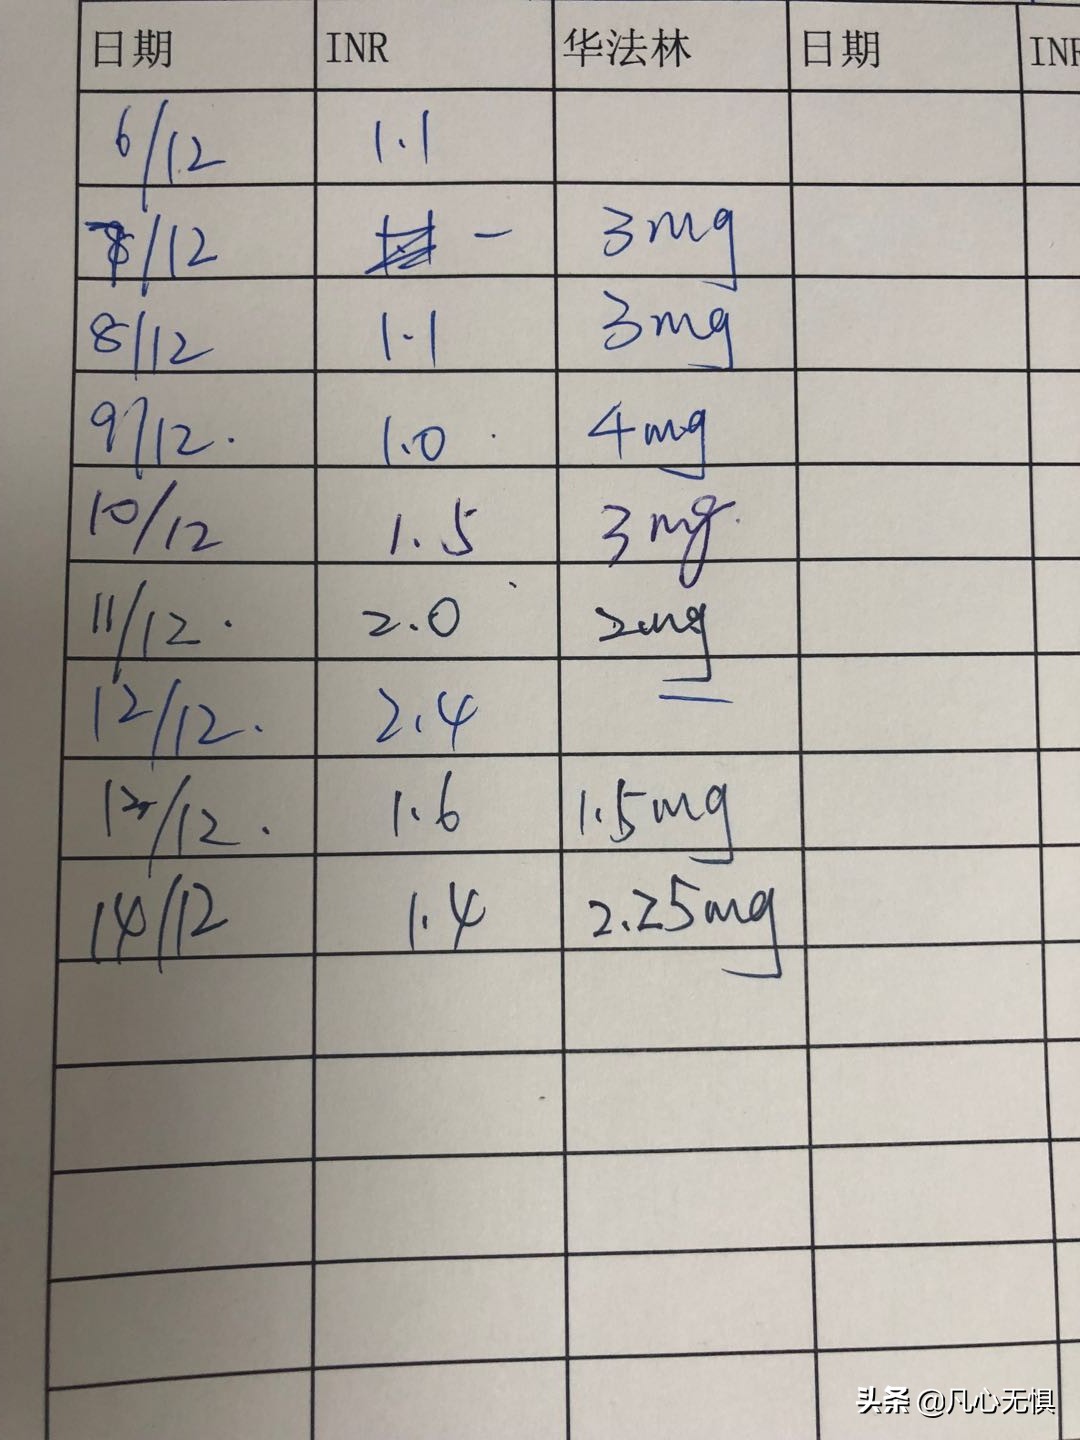 日期 INR 华法林 日期 INR
6/12 1.1
7/12 - 3mg
8/12 1.1 3mg
9/12. 1.0 4mg
10/12 1.5 3mg.
11/12. 2.0 2mg
12/12. 2.4 —
/12. 1.6 1.5mg
14/12 1.4 2.25mg
头条 @凡心无惧